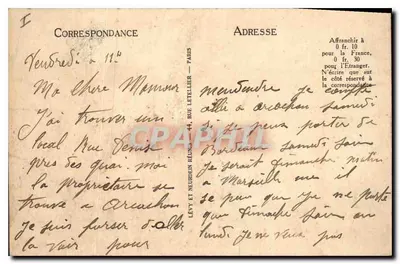 I
CORRESPONDANCE
ADRESSE
Affranchir à
0 fr. 10
pour la France,
0 fr. 30
pour l'Etranger.
N'écrire que sur
le côté réservé à
la correspondance
LÉVY ET NEURDEIN RÉUNIS, 44, RUE LETELLIER — PARIS
CPARAMA
Vendredi a 11h
Ma Chere Maman
J'ai trouver un
local Rue Denise
près des quai. moi
la propriétaire se
trouve a Arcachon
je suis forser d'aller
la voir pour
je compte
allé a arcachon samedi
si je peux partir de
Bordeaux samedi soir
je serait dimanche matin
a Marseille
se peu que je ne parte
que dimanche soir ou
lundi je ne veux pas